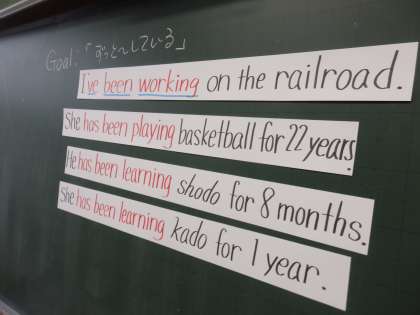 Goal:「ずっと〜している」
I've been working on the railroad.
She has been playing basketball for 22 years.
He has been learning shodo for 8 months.
She has been learning kado for 1 year.